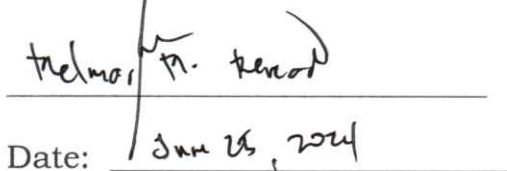 Thelma M.
Date: June 25, 2024